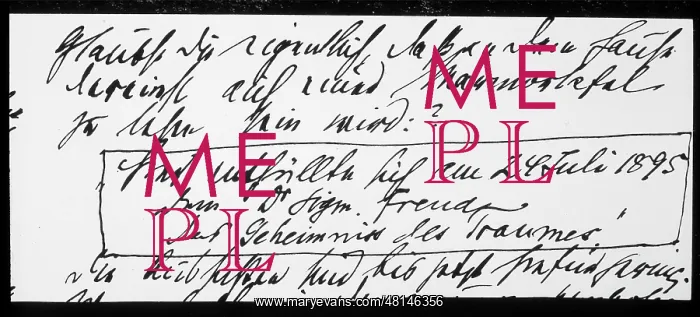 Glaubst Du eigentlich, daß an dem Hause
dereinst auf einer Marmortafel
zu lesen sein wird:?
Hier enthüllte sich am 24. Juli 1895
dem Dr Sigm. Freud
das Geheimnis des Traumes"
Die Aussichten sind bis jetzt hiefür gering.
ME
PL
ME
PL
www.maryevans.com/48146356